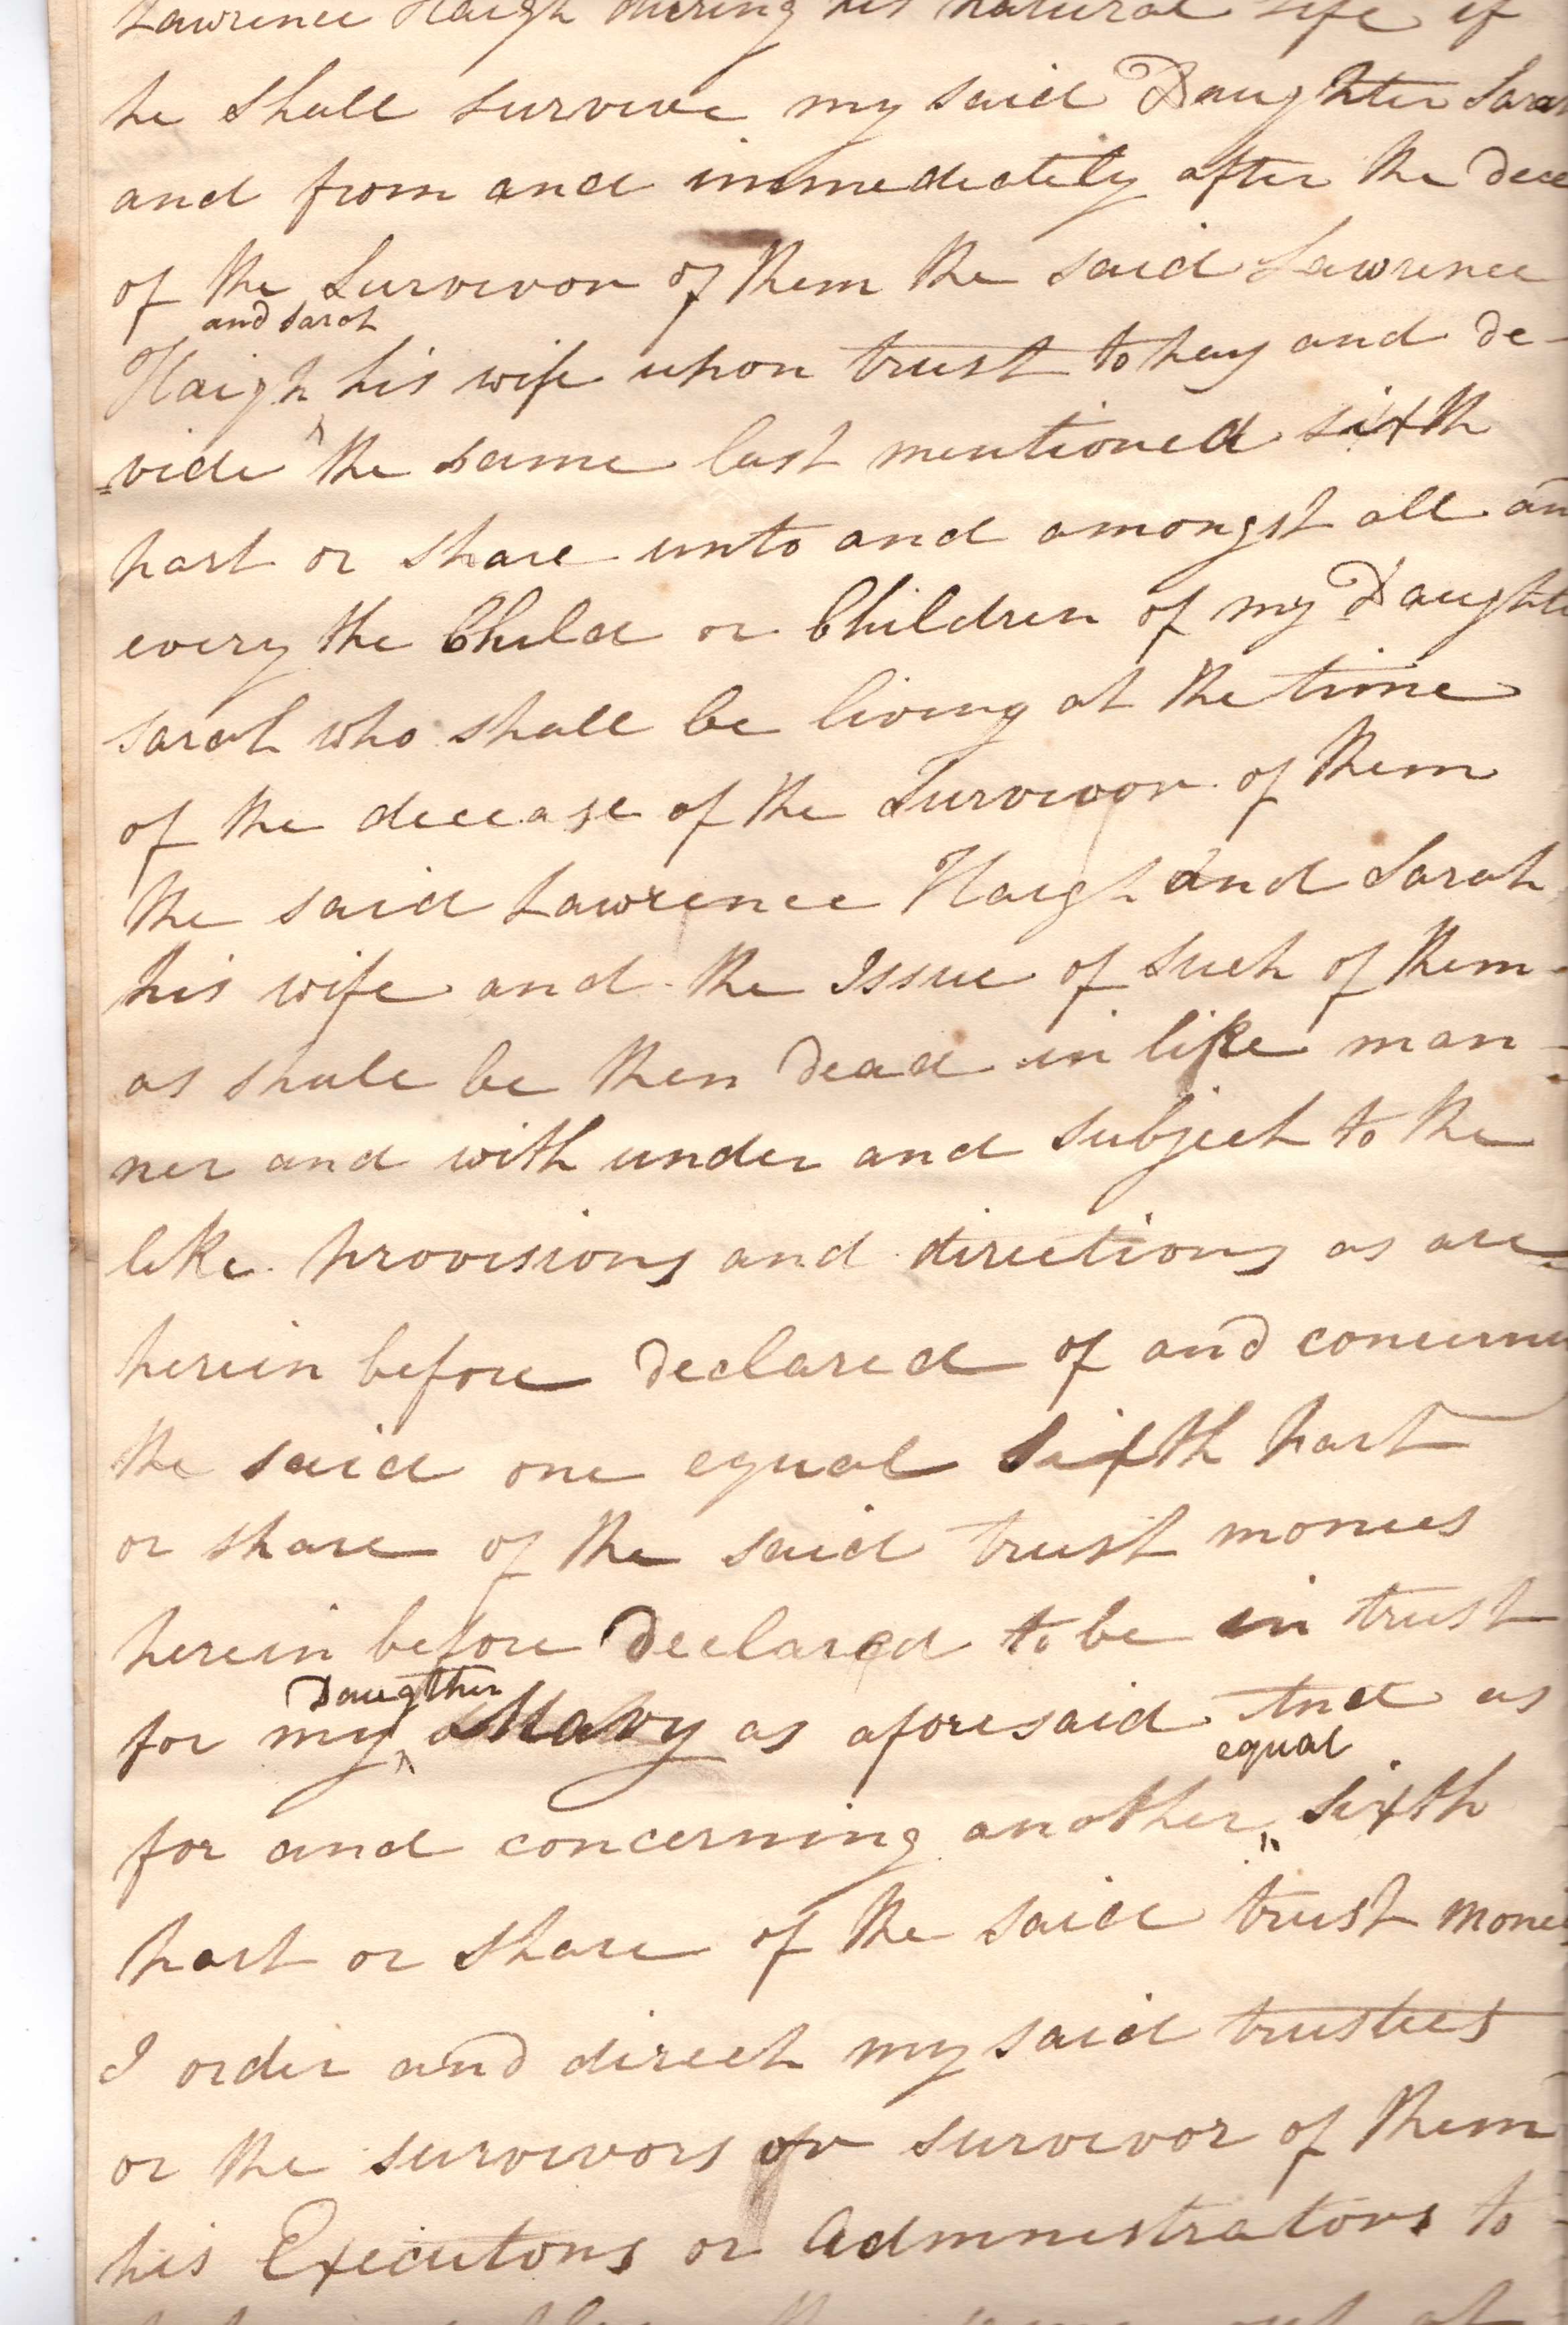 Lawrence Haigh during his natural life if
he shall survive my said Daughter Sarah
and from and immediately after the dece
of the Survivor of them the said Lawrence
and Sarah
Haigh his wife upon trust to pay and de-
=vide the same last mentioned sixth
part or share unto and amongst all an
every the Child or Children of my Daughte
Sarah who shall be living at the time
of the decease of the Survivor of them
the said Lawrence Haigh and Sarah
his wife and the Issue of such of them
as shall be then dead in like man-
ner and with under and subject to the
like provisions and directions as are
herein before declared of and concernin
the said one equal sixth part
or share of the said trust monies
herein before declared to be in trust
Daugther
for my Mary as aforesaid And as
equal
for and concerning another sixth
part or share of the said trust monies
I order and direct my said trustees
or the survivors or survivor of them
his Executors or Admnistrators to